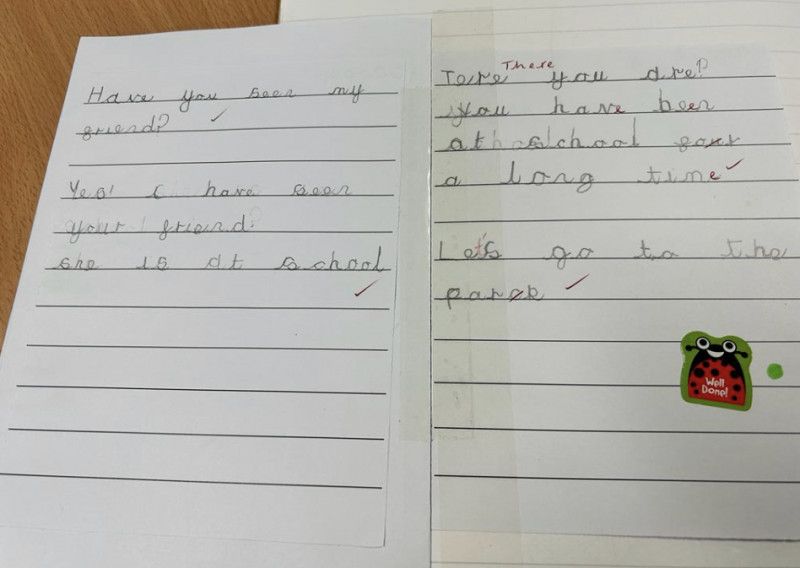 Have you seen my
friend?
Yes! I have seen
your friend.
she is at school
There
Tere you are?
you have been
at school four
a long time
Let's go to the
parck
Well
Done!